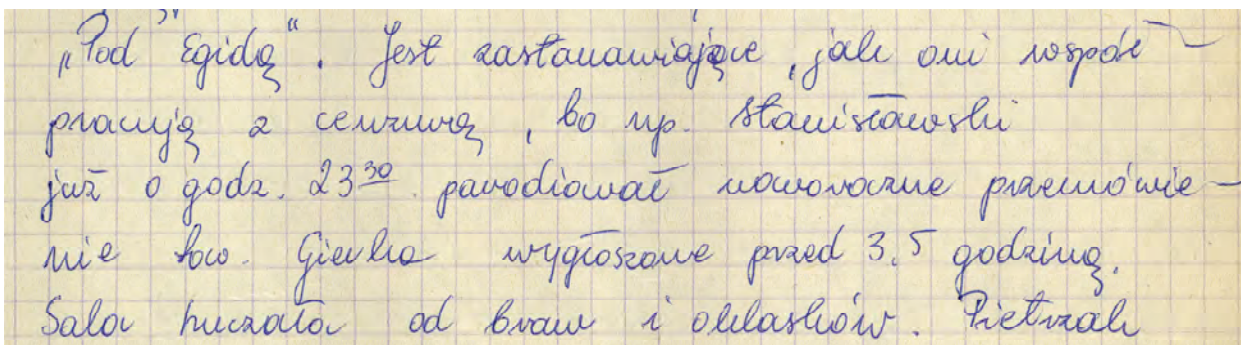 „Pod Egidą". Jest zastanawiające, jak oni współ-
pracują z cenzurą, bo np. Stanisławski
już o godz. 23³⁰ parodiował noworoczne przemówie-
nie tow. Gierka wygłoszone przed 3,5 godziną.
Sala huczała od braw i oklasków. Pietrzak